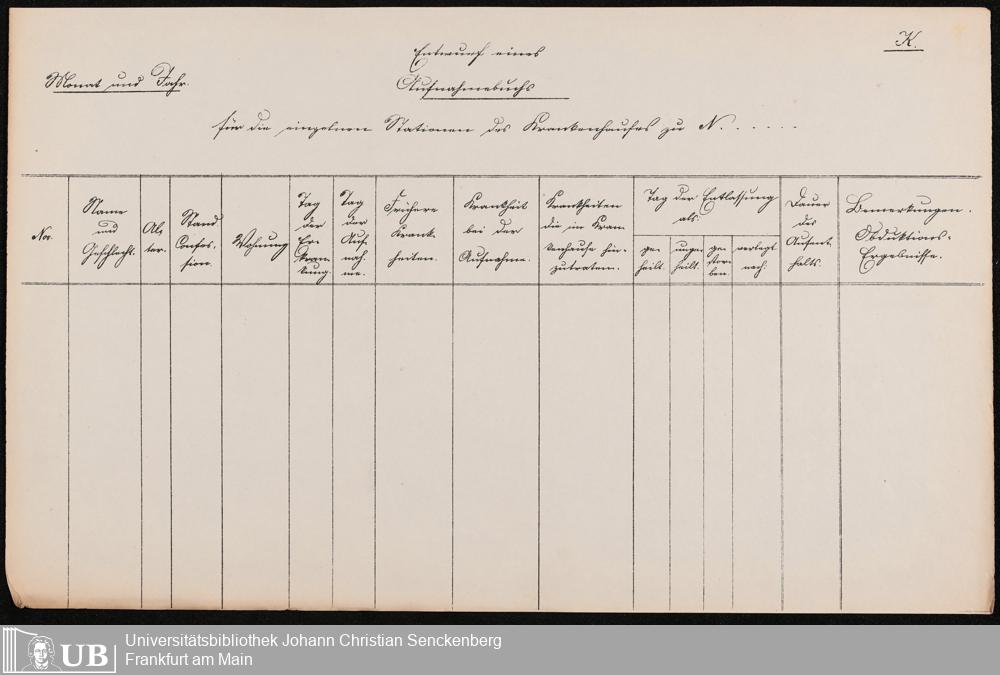 K.
Entwurf eines
Monat und Jahr.
Aufnahmebuchs
für die einzelnen Stationen des Krankenhauses zu N. . . . . .
Nor.
Name
und
Geschlecht.
Al-
ter.
Stand
Confes-
sion.
Wohnung
Tag
der
Er-
kran-
kung.
Tag
der
Auf-
nah-
me.
Frühere
Krank-
heiten.
Krankheit
bei der
Aufnahme.
Krankheiten
die im Kran-
kenhause hin-
zutraten.
Tag der Entlassung
als:
ge-
heilt.
unge-
heilt.
ge-
stor-
ben.
verlegt
nach:
Dauer
des
Aufent-
halts.
Bemerkungen.
Obduktions-
Ergebnisse.
UB
Universitätsbibliothek Johann Christian Senckenberg
Frankfurt am Main